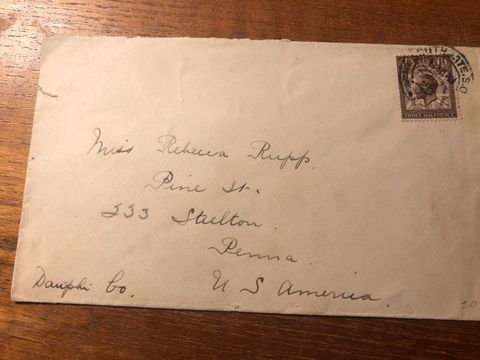 THREE HALFPENCE
Miss Rebecca Rupp.
Pine St.
333 Steelton.
Penna.
U S America.
Dauphi Co.